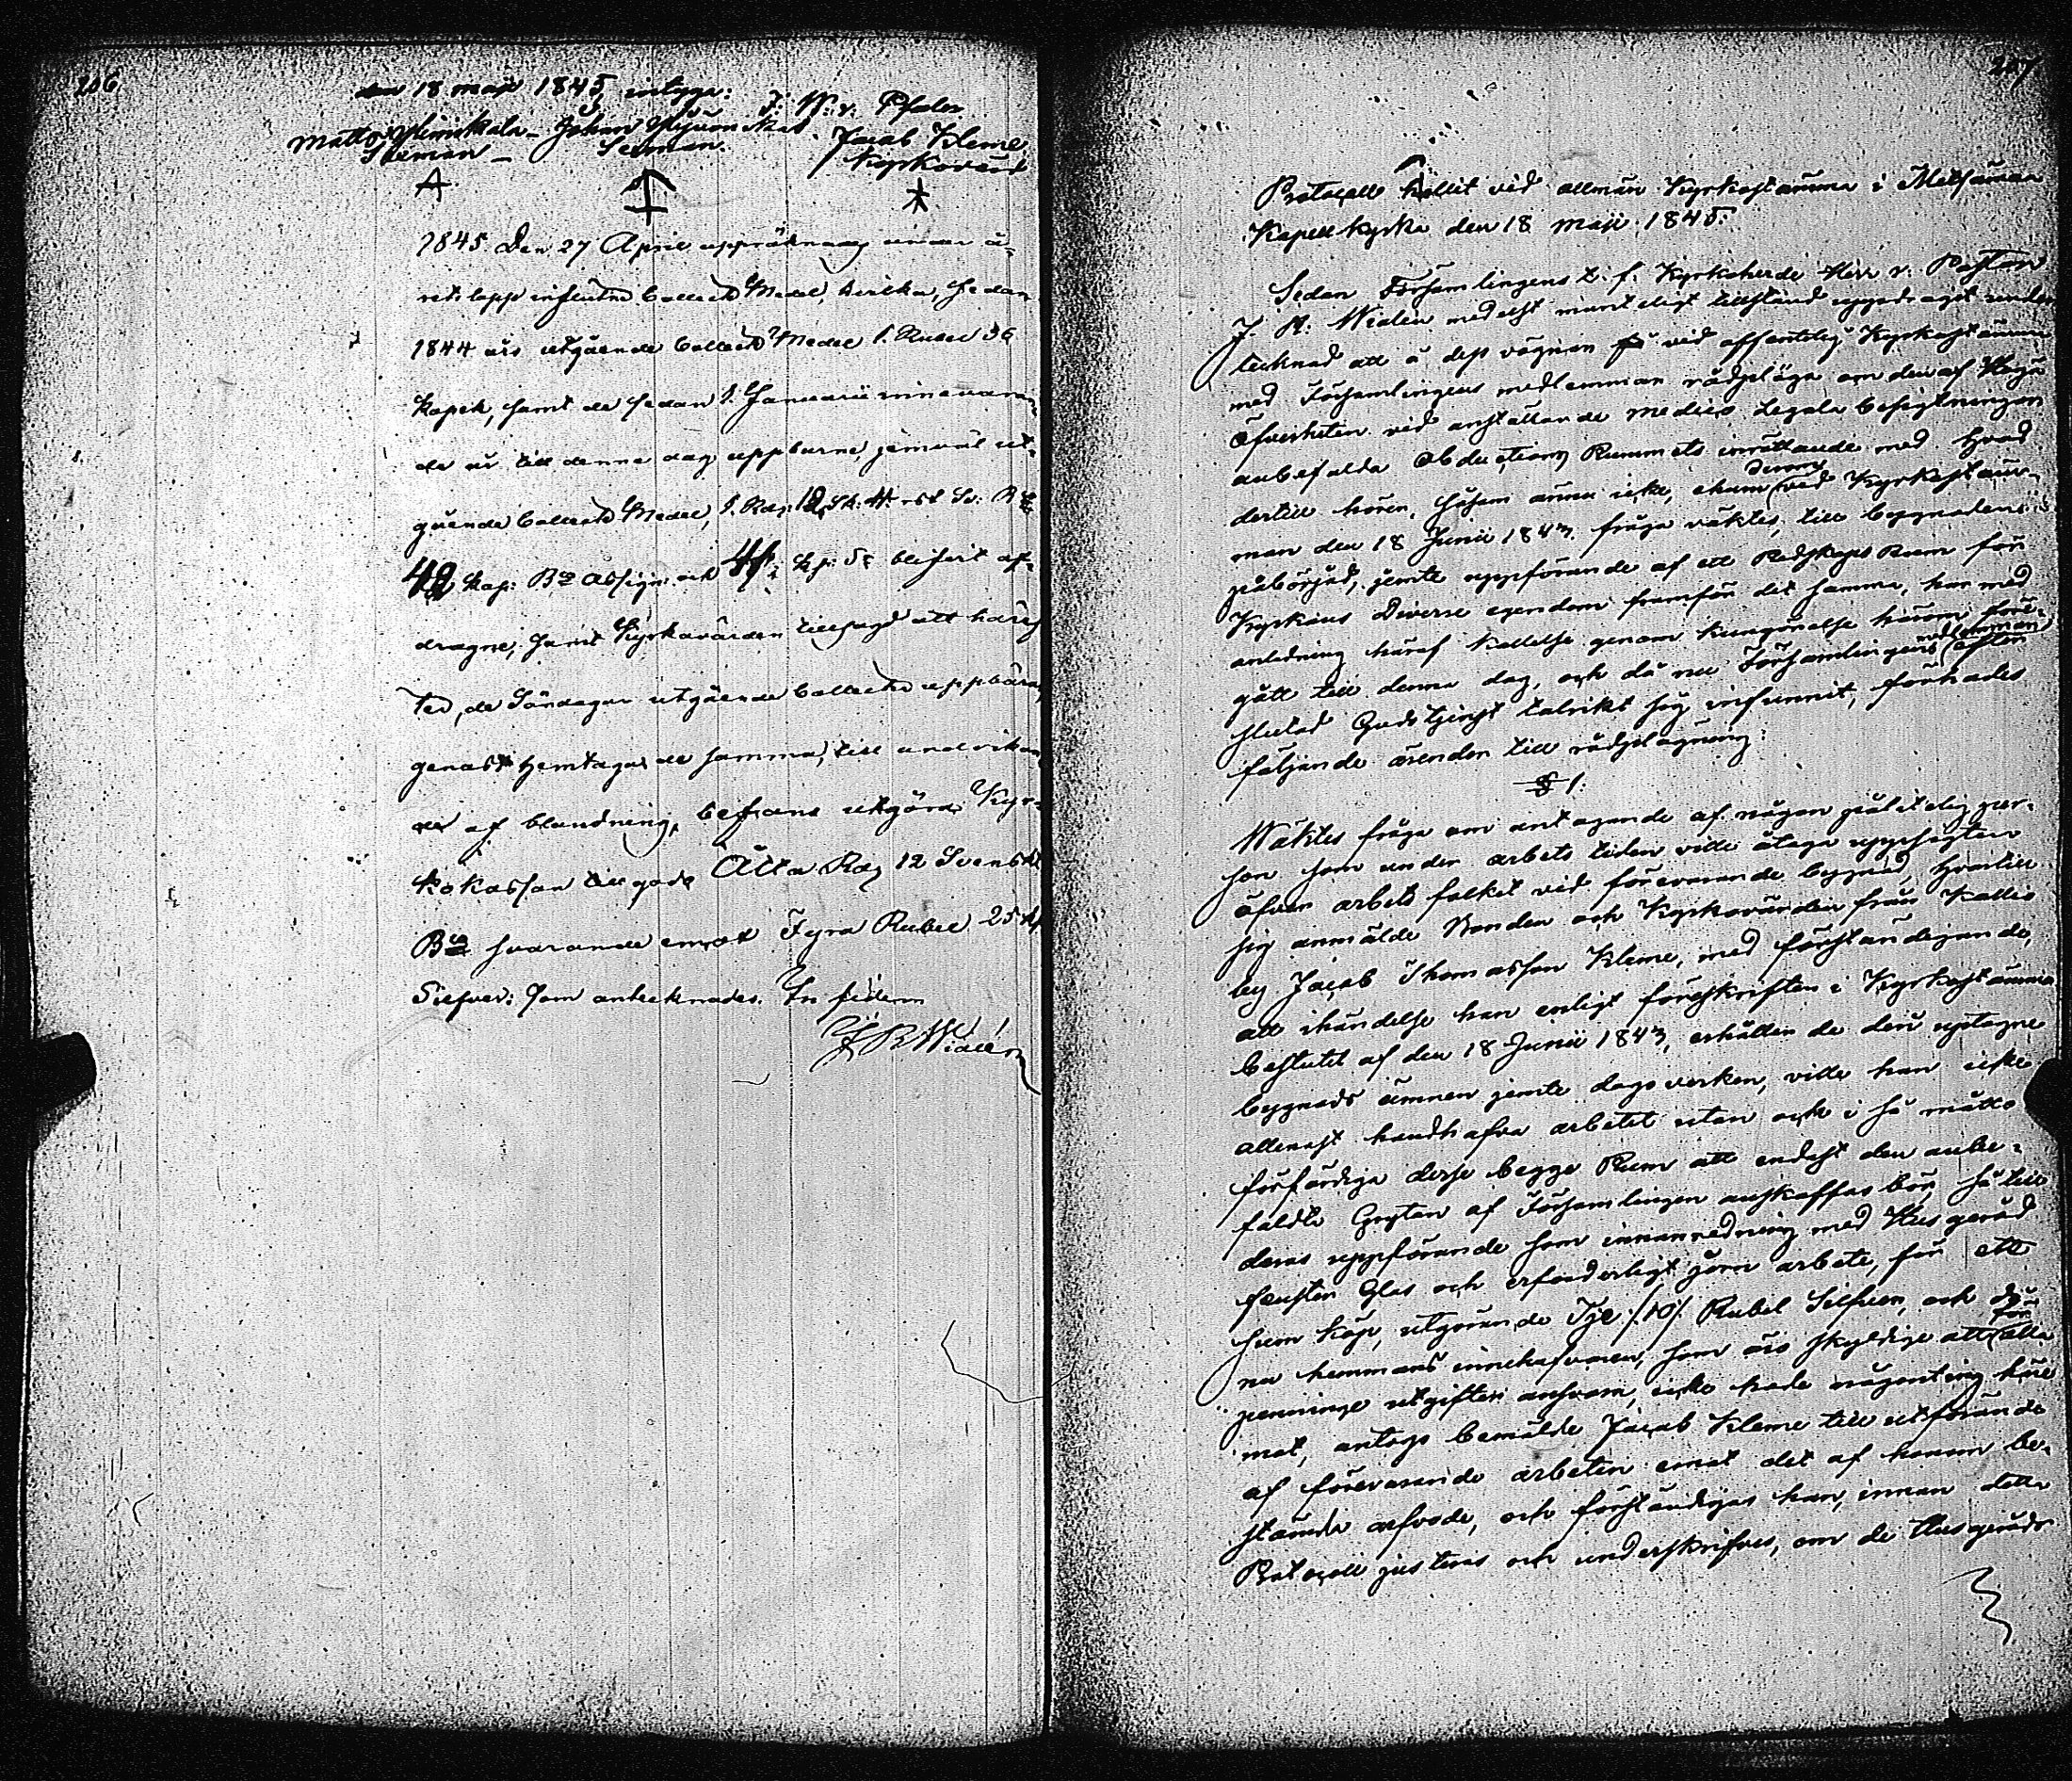 206
den 18 maji 1845, intyga:
J. W. v. Pfaler
Matts Heinikala – Johan
Jacob Kleme
Sexman – Sexman.
Kyrkovärd
1845 Den 27 April uppräknades innan å-
rets lopp influtne Collect Medel, hvilka, sedan
1844 års utgående Collect Medel 1. Rubel 36
kopek, samt de sedan 1. Januarii innevaran-
de år till denna dag uppburne, jemväl ut-
gående Collect Medel, 1. Rdr: 12 Sk: 4 rst Sv: B:co
48 kop: B:co Assign: och kp: Sr blifvit af-
dragne, samt Kyrkovärden tillsagd att häref-
ter, de Söndagar utgående Collecter uppbäras,
genast hemtaga de samma, till undvikan-
de af blandning, befans utgöra Kyr-
kokassan till godo Åtta Rdr 12 Svenskt
B:co svarande emot Fyra Rubel 25 k
Silfver: som antecknades. In fidem
J R Widlén
207
Protocoll hållit vid allmän Kyrkostämma i Metsämaa
Kapellkyrka den 18 Maji 1845.
Sedan Församlingens t. f. Kyrkoherde Herr v. Pastorn
J. R. Widlén medelst muntligt tillstånd uppdragit under
tecknad att å dess vägnar vid offentelig Kyrkostämma
med Församlingens medlemmar rådpläga om den af Höga
Öfverheten vid anställande medico Legala besigtningar
anbefalda Obductions Rummets inrättande med hvad
dertill hörer, såsom ännu icke, ehuru derom vid Kyrkostäm-
man den 18 Junii 1843. fråga väktes, till byggnaden
påbörjad, jemte uppförande af ett Redskaps Rum för
Kyrkans Diverse egendom framför det samma, har med
anledning häraf kallelse genom kungörelse härom före-
gått till denna dag, och då nu Församlingens medlemmar efter
slutad Gudstjenst talrikt sig infunnit, förehades
följande ärender till rådplägning:
§ 1.
Wäktes fråga om antagande af någon pålitelig per-
son som under arbets tiden ville åtaga uppsigten
öfver arbets folket vid förevarande byggnad, hvartill
sig anmälde Bonden och Kyrkovärden från Kallis
by Jacob Thomasson Kleme, med förständigande,
att ihändelse han enligt föreskriften i Kyrkostämma
beslutet af den 18 Junii 1843, erhåller de deri uptagne
byggnads ämnen jemte dagsverken, ville han icke
allenast handhafva arbetet utan ock i så måtto
förfärdiga desse begge Rum att endast den anbe-
falde Grytan af Församlingen anskaffas bör, så till
deras uppförande som innanredning med Husgeråd
fenster Glas och erforderligt jern arbete, för ett
sum köp, utgörande Tjo /:10:/ Rubel Silfver, och då
na hemmans innehafvaren, som äro skyldige att för alla
penninge utgifter ansvara, icke hade någonting häre
mot, antogs bemälde Jacob Kleme till utförande
af förevarande arbeten emot det af honom be-
stämda arfvode, och förständigas han, innan detta
Protocoll justeras och underskrifves, om de Husgeråds